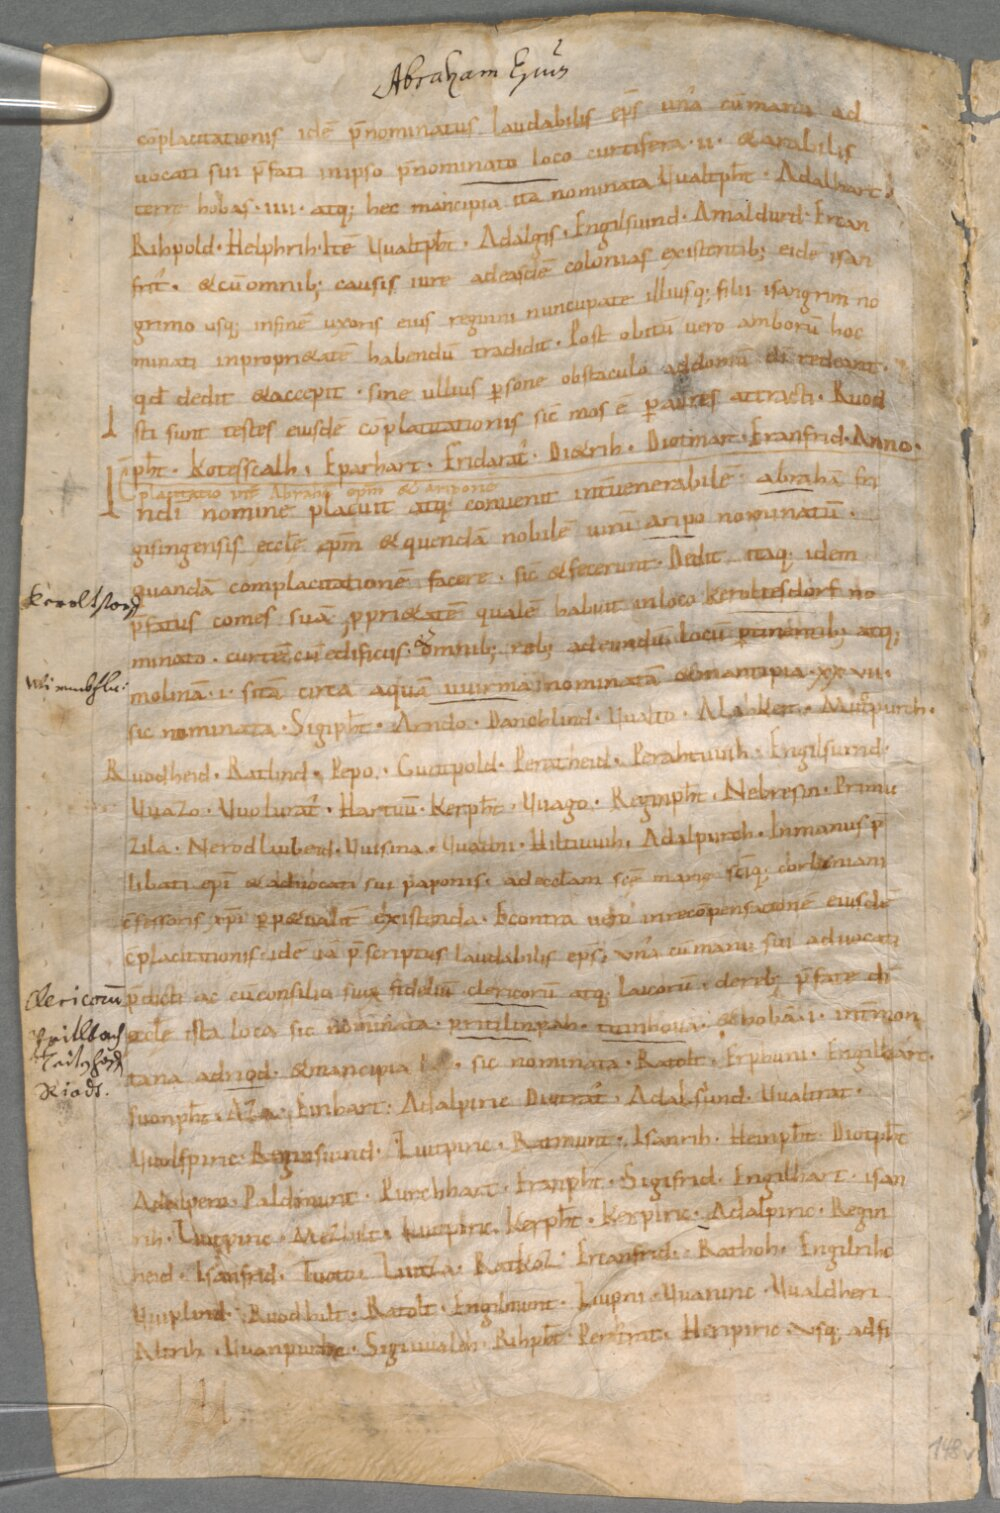 Abraham Epūs
cōplacitationis idē p̄nominatus laudabilis ep̄s unā cū manu ad
uocati sui p̄fati in ipso p̄nominato loco curtifera · ii · & arabilis
terre hobas · iiii · atq; hec mancipia ita nominata Uualtp̄ht · Adalhart ·
Rihpold · Helphrih · Itē Uualtp̄ht · Adalgis · Engilsuind · Amaldurd · Ercan
frit · & cū omnib; causis iure ad easdē colonias existentib; eidē isan
grimo usq; in finē uxoris eius reginni nuncupate illiusq; filii isangrim no
minati in propri&atē habendū tradidit · Post obitū uero amborū hoc
qđ dedit & accepit · sine ullius p̱sone obstaculo ad domū dī redeant ·
Isti sunt testes eiusdē cōplacitationis sic̄ mos ē p̱ aures attracti · Ruod
p̄ht · Kotesscalh · Eparhart · Fridarat · Di&rih · Diotmar · Eranfrid · Anno ·
Cp̄lacitatio int̄ Abrahā ep̄m & aripone
In dī nomine placuit atq; conuenit int̄ uenerabilē abrahā fri
gisingensis eccłe ep̄m & quendā nobilē uirū aripo nominatū ·
quandā complacitationē facere · sic̄ & fecerunt · Dedit itaq; idem
Keroltstorf
p̄fatus comes suā p̱pri&atē qualē habuit in loco keroltesdorf no
minato · curtē cū edificiis · & omnib; reb; ad eundū locū p̱tinentib; atq;
molinā · i · sitā circa aquā uuirma nominatā & mancipia · xx vii ·
sic nominata · Sigip̄ht · Arndo · Danchlind · Uualto · Muotpurch ·
Ruodheid · Ratlind · Pepo · Guntpold · Peratheid · Perahtuuih · Engilsuind ·
Uuazo · Uuolurat · Hartuuī · Kerp̄ht · Uuago · Reginp̄ht · Nebresin · Primic
Zila · Nerodlubeid · Uuisina · Hiltiuuih · Adalpurch · In manus p̄
libati ep̄i & aduocati sui paponis · ad eccłam scē marię scīq; corbiniani
c̄fessoris xp̄i p̱p&ualit̄ existenda · Econtra uero in recōpensationē eiusdē
c̄placitationis idē iā p̄scriptus laudabilis ep̄s, unā cū manu sui aduocati
Clericorū
p̄dicti ac cū consiliu suoꝝ fideliū clericorū atq; laicorū · de reb; p̄fate dī
Pritlbach
eccłe ista loca sic nominata · pritilinpah · tuinhoua · & hobā · i · int̄ mon
Riodt.
tana ad riod · & mancipia · sic nominata · Ratolt · Erphuni · Engilhart ·
suonp̄ht · Aza · Einhart · Adalpiric Diotrat · Adalsuind · Uualtrat ·
Uuolfpiric · Reginsuind · Liutpiric · Ratmunt · Isanrih · Heinp̄ht · Diotp̄ht
Adalpero · Paldmunt · Purchhart · Eranp̄ht · Sigifrid · Engilhart · isan
rih · Liutpiric · Mezhilt · Liutpiric · Kerp̄ht · Kerpiric · Adalpiric · Regin
heid · Isanfrid · Tuoto · Liutza · Ratkoz · Ercanfrid · Rathoh · Engilrihc
Uuiplind · Ruodhilt · Ratolt · Engilmunt · Liupni · Uuaninc · Uualdheri
Altrih · Uuanpurhc · Sigiuualch · Rihp̄ht · Perhtrat · Heripiric · usq; ad fi
148v